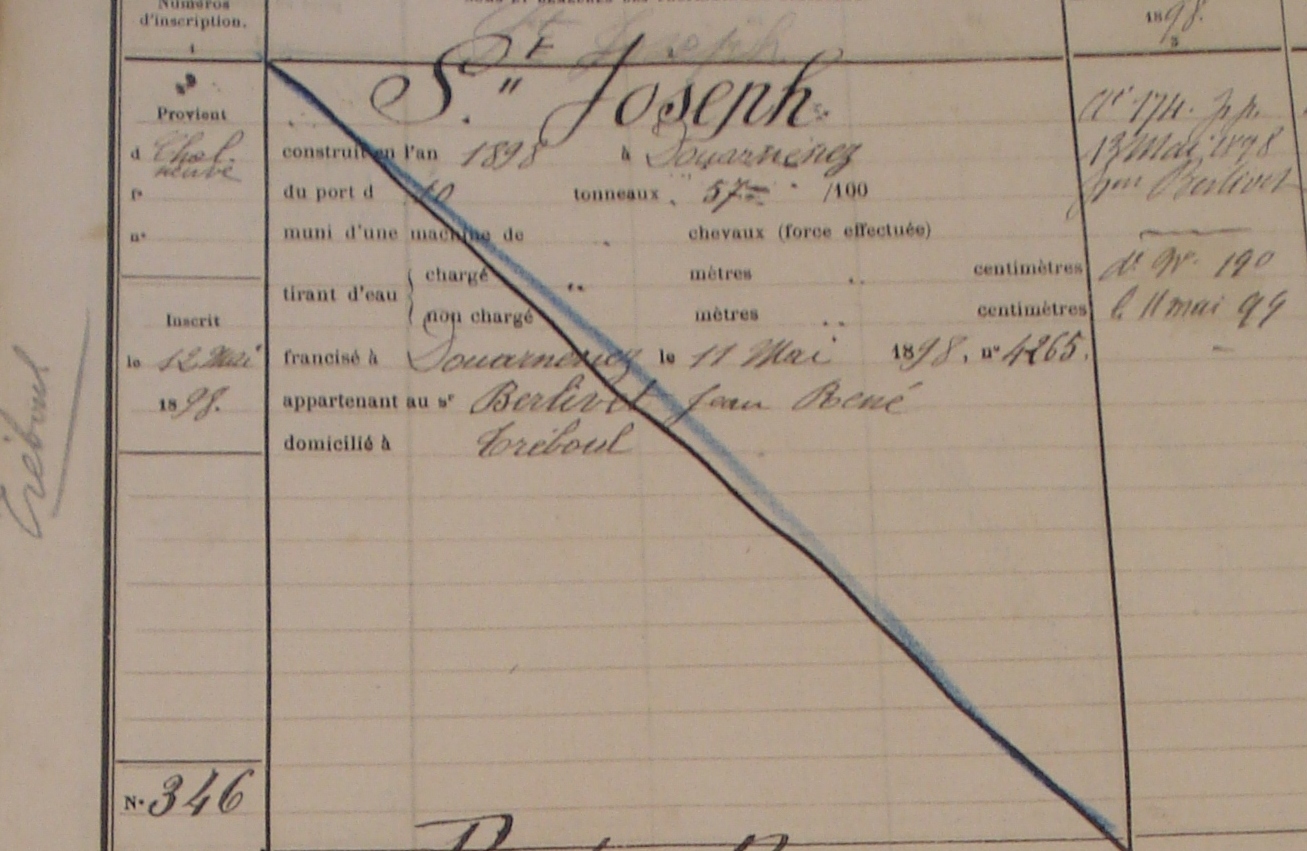 Numéros
d'inscription.
1
1898.
3
St Joseph
S.t Joseph.
Provient
d Chal. neuve
f°
n°
Inscrit
le 12 Mai
1898.
N° 346
Tréboul
construit en l'an 1898 à Douarnenez
du port d 10 tonneaux 57 /100
muni d'une machine de chevaux (force effectuée)
tirant d'eau { chargé " mètres " centimètres
non chargé mètres " centimètres
francisé à Douarnenez le 11 Mai 1898, n° 4265.
appartenant au sr Berlivet Jean René
domicilié à Tréboul
174.
13 Mai 1898
Berlivet
190
le 11 mai 99